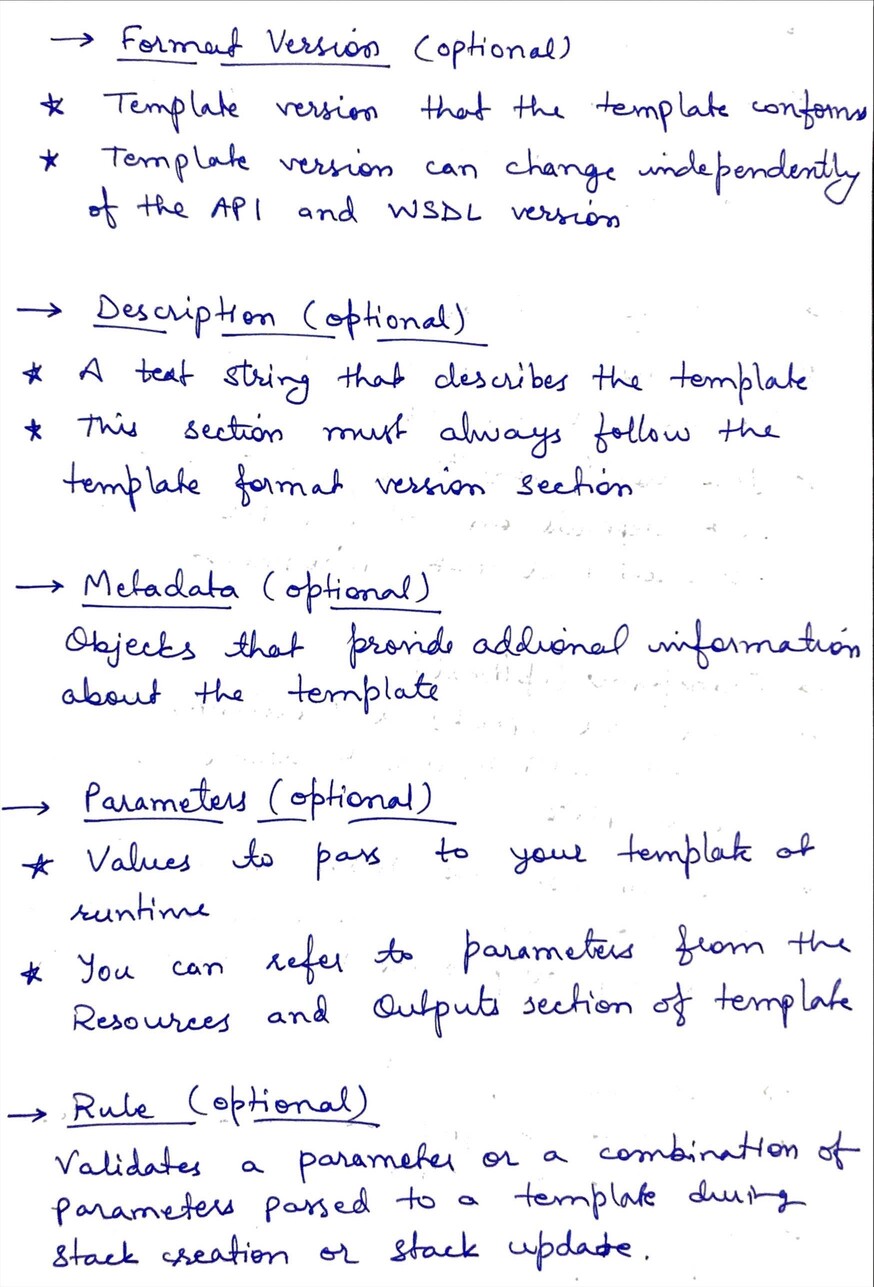 → Format Version (optional)
* Template version that the template conforms
* Template version can change independently
of the API and WSDL version
→ Description (optional)
* A text string that describes the template
* This section must always follow the
template format version section
→ Metadata (optional)
Objects that provide addional information
about the template
→ Parameters (optional)
* Values to pass to your template at
runtime
* You can refer to parameters from the
Resources and Outputs section of template
→ Rule (optional)
Validates a parameter or a combination of
parameters passed to a template during
stack creation or stack update.